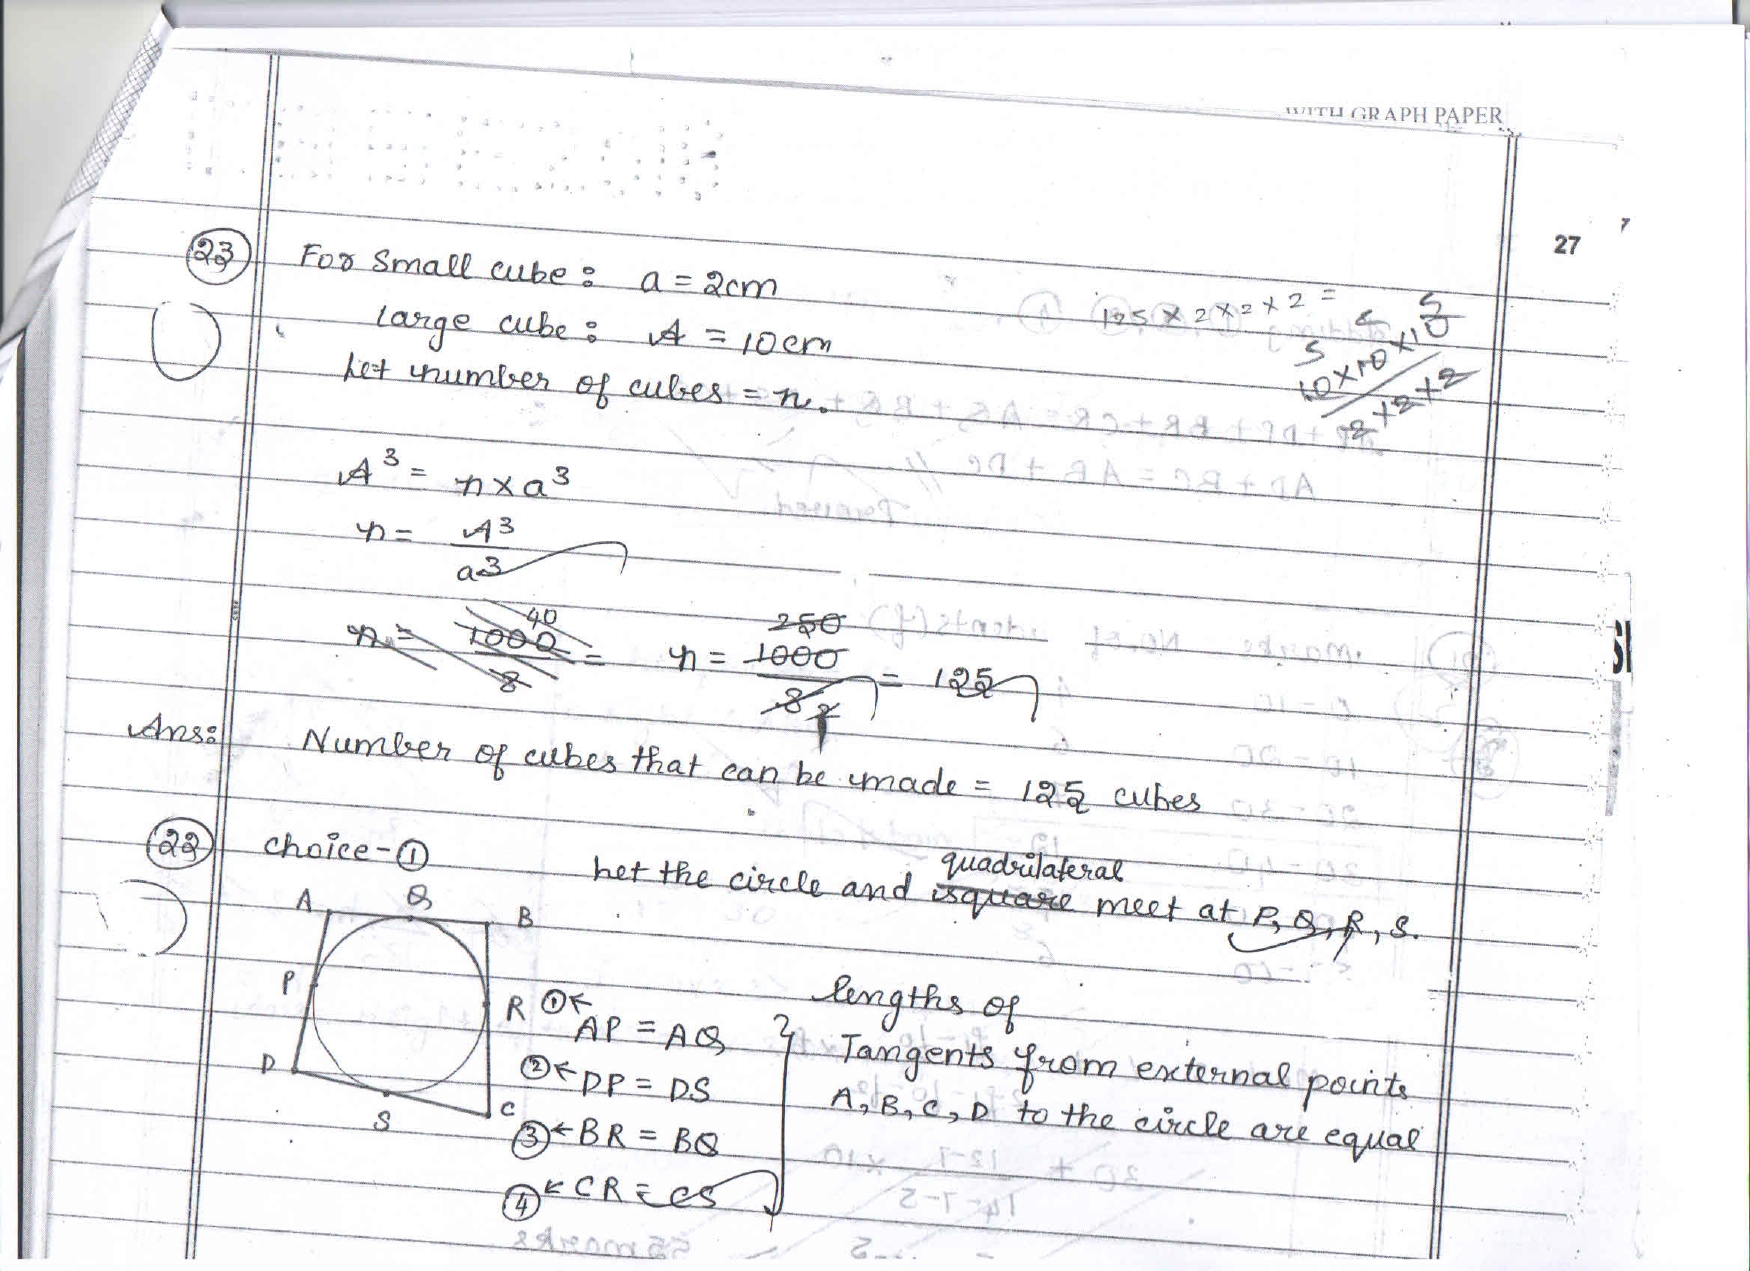 WITH GRAPH PAPER
27
23 For small cube: a = 2cm
large cube: A = 10cm
Let number of cubes = n.
125 × 2 × 2 × 2 =
5 5 5
10 × 10 × 10
2 × 2 × 2
A³ = n × a³
n = A³
a³
n = 1000 40 = n = 1000 250 = 125
8 8 2
Ans: Number of cubes that can be made = 125 cubes
22 choice - ①
quadrilateral
Let the circle and square meet at P, Q, R, S.
A Q B
P R
D S C
① ← AP = AQ
② ← DP = DS
③ ← BR = BQ
④ ← CR = CS
lengths of
Tangents from external points
A, B, C, D to the circle are equal